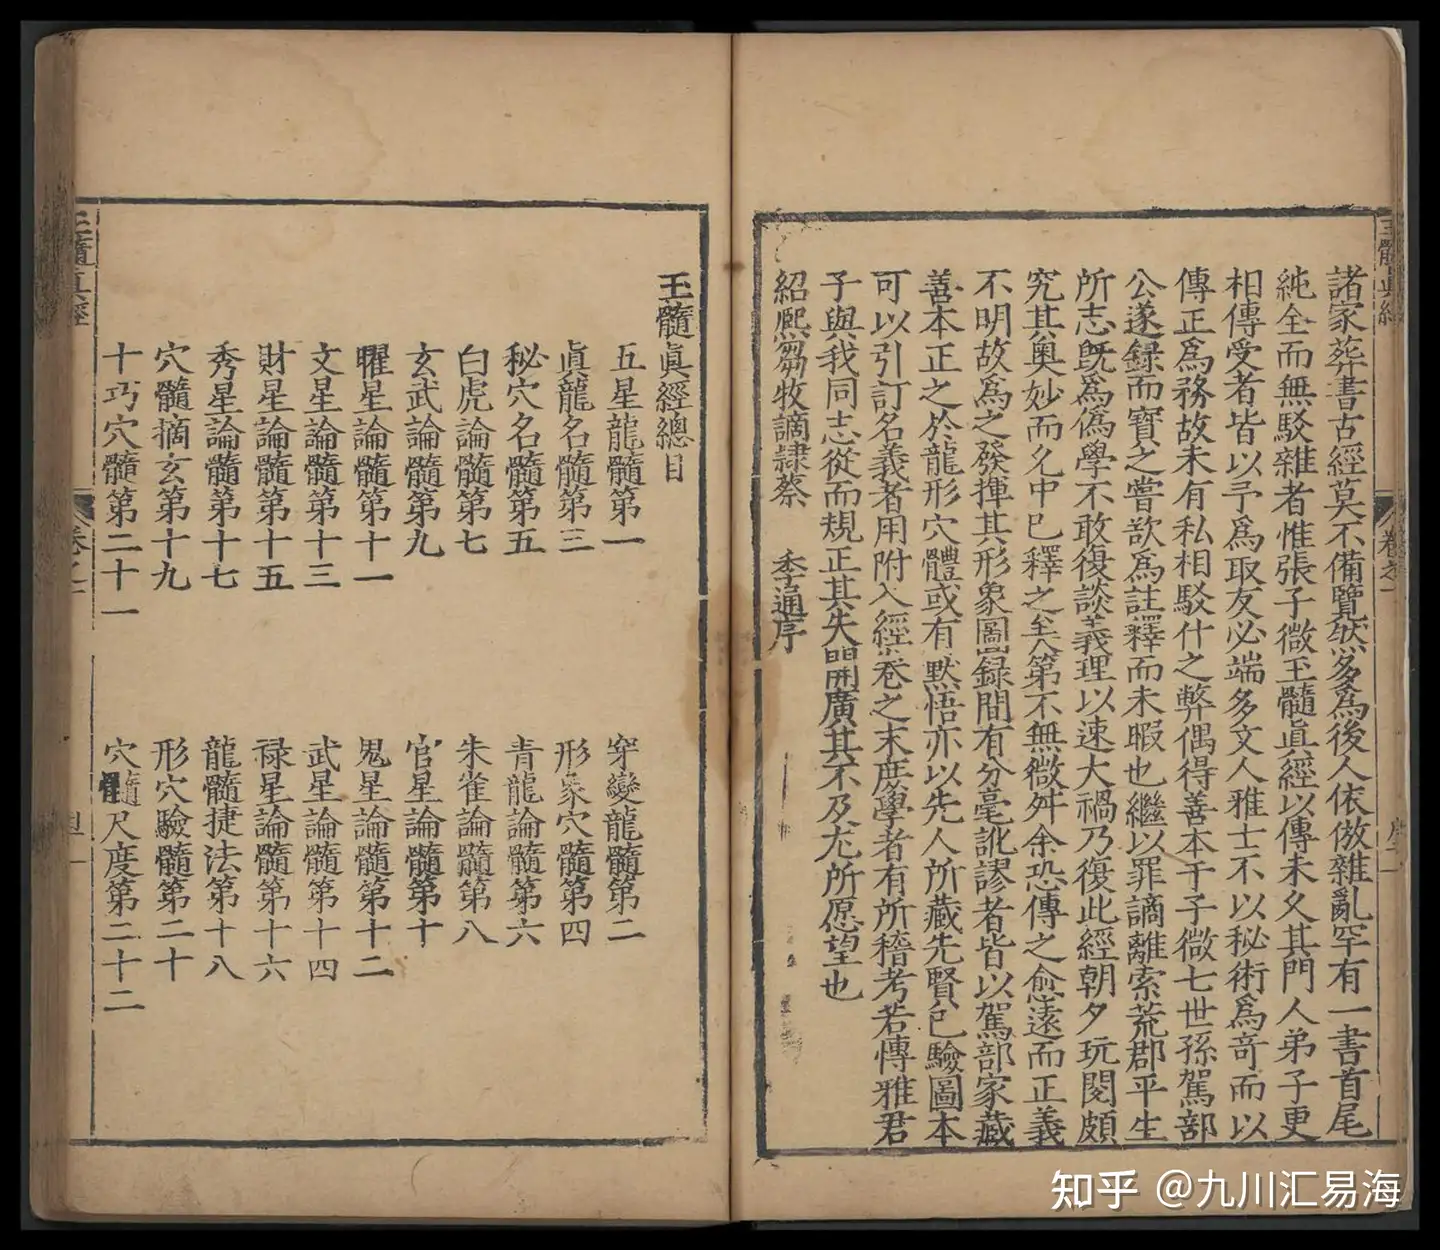 諸家葬書古經莫不備覽然多爲後人依倣雜亂罕有一書首尾
純全而無駁雜者惟張子微玉髓眞經以傳未久其門人弟子更
相傳受者皆以予爲取友必端多文人雅士不以秘術爲奇而以
傳正爲務故未有私相駁什之弊偶得善本于子微七世孫駕部
公遂録而寶之嘗欲爲註釋而未暇也繼以罪謫離索荒郡平生
所志旣爲僞學不敢復談義理以速大禍乃復此經朝夕玩閱頗
究其奥妙而允中已釋之矣第不無微舛余恐傳之愈遠而正義
不明故爲之發揮其形象圖録間有分毫訛謬者皆以駕部家藏
善本正之於龍形穴體或有默悟亦以先人所藏先賢已驗圖本
可以引訂名義者用附入經卷之末庶學者有所稽考若博雅君
子與我同志從而規正其失開廣其不及尤所愿望也
紹熙芻牧謫隷蔡 季通序
玉髓眞經 卷之一 序二
玉髓眞經總目
五星龍髓第一 穿變龍髓第二
眞龍名髓第三 形象穴髓第四
秘穴名髓第五 青龍論髓第六
白虎論髓第七 朱雀論髓第八
玄武論髓第九 官星論髓第十
曜星論髓第十一 鬼星論髓第十二
文星論髓第十三 武星論髓第十四
財星論髓第十五 禄星論髓第十六
秀星論髓第十七 龍髓捷法第十八
穴髓摘玄第十九 形穴驗髓第二十
十巧穴髓第二十一 穴髓尺度第二十二
玉髓眞經 卷之一 目一
知乎 @九川汇易海